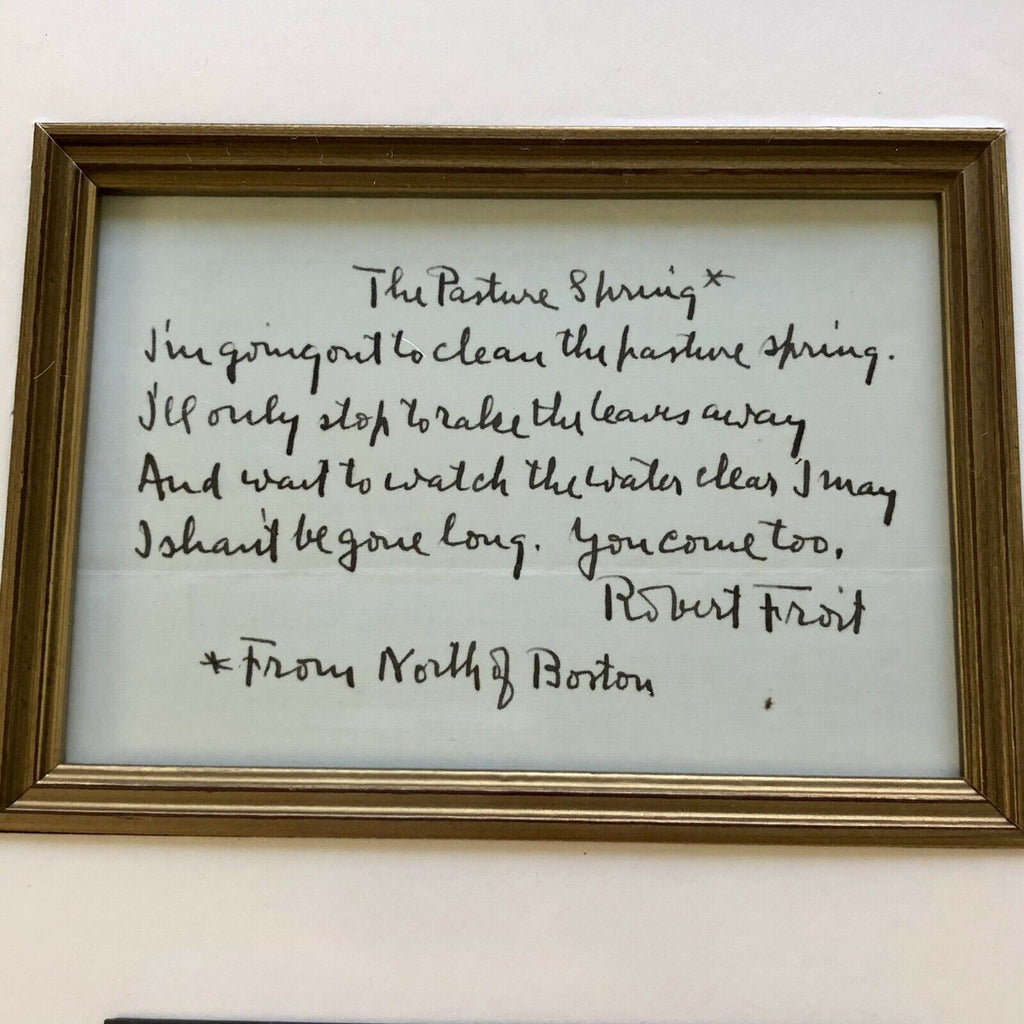 The Pasture Spring*
I'm going out to clean the pasture spring.
I'll only stop to rake the leaves away
And wait to watch the water clear I may
I shan't be gone long. You come too.
Robert Frost
*From North of Boston